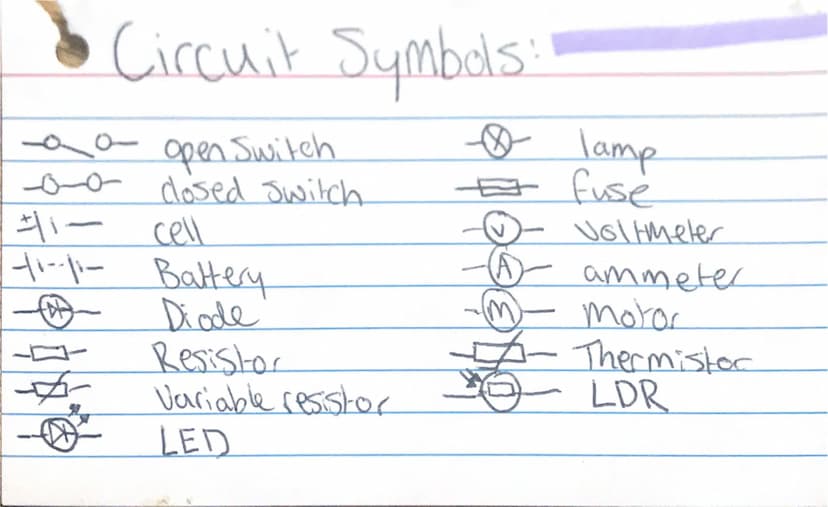 Circuit Symbols:
open switch
closed switch
cell
Battery
Diode
Resistor
Variable resistor
LED
lamp
fuse
V voltmeter
A ammeter
M motor
Thermistor
LDR